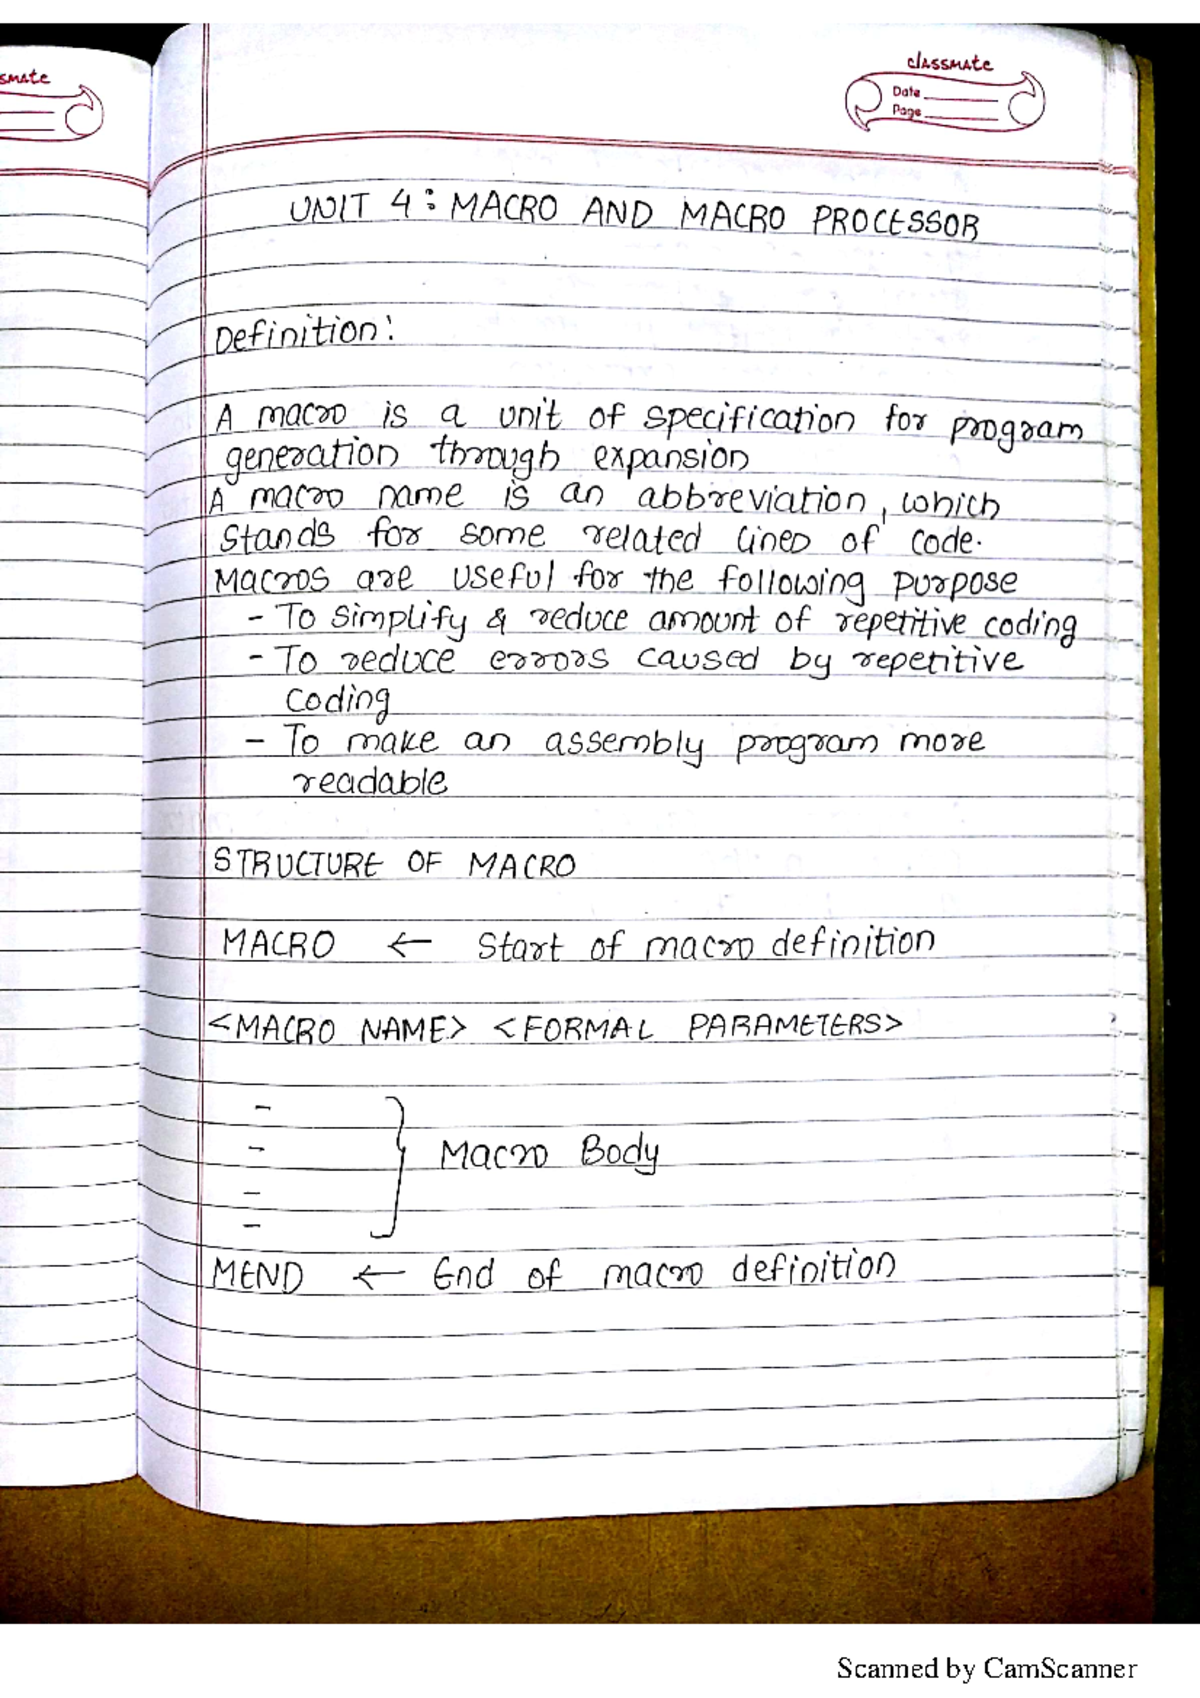 smate
classmate
Date
Page
UNIT 4: MACRO AND MACRO PROCESSOR
Definition:
A macro is a unit of specification for program
generation through expansion
A macro name is an abbreviation, which
stands for some related lines of code.
Macros are useful for the following purpose
- To simplify & reduce amount of repetitive coding
- To reduce errors caused by repetitive
coding
- To make an assembly program more
readable
STRUCTURE OF MACRO
MACRO ← Start of macro definition
<MACRO NAME> <FORMAL PARAMETERS>
-
- } Macro Body
-
-
MEND ← End of macro definition
Scanned by CamScanner